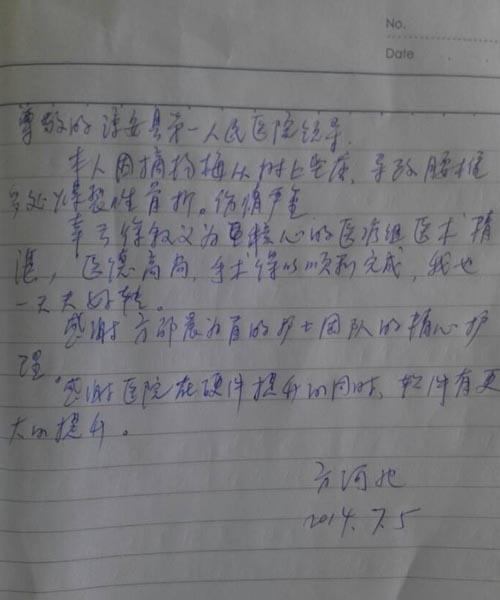 No.
Date
尊敬的淳安县第一人民医院领导.
本人因摘杨梅从树上坠落，导致腰椎
多处爆裂性骨折。伤情严重
幸亏徐叙义为重核心的医疗组医术精
湛，医德高尚，手术得以顺利完成，我也
一天天好转。
感谢方邵晨为首的护士团队的精心护
理。
感谢医院在硬件提升的同时，软件有更
大的提升。
方河北
2014.7.5